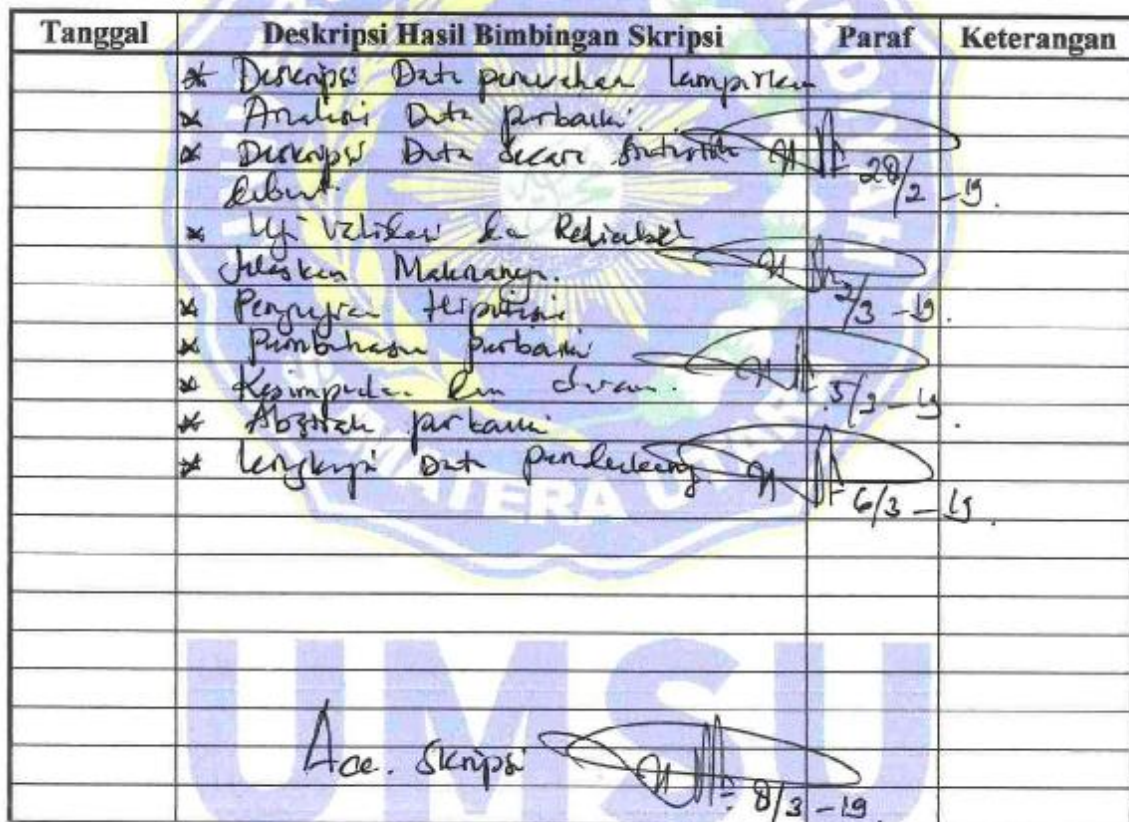 Tanggal Deskripsi Hasil Bimbingan Skripsi Paraf Keterangan
* Deskripsi Data perusahaan lampirkan
* Analisis Data perbaiki
* Deskripsi Data secara statistik 28/2 -19.
sebut.
* Uji Validasi dan Reliabel
Jelaskan Maknanya. 2/3 -19.
* Pengujian Hipotesis
* Pembahasan perbaiki
* Kesimpulan dan saran. 5/3 -19
* Abstrak perbaiki
* Lengkapi Data pendukung 6/3 -19.
SUMATERA UTARA
UMSU
Acc. Skripsi 8/3 -19